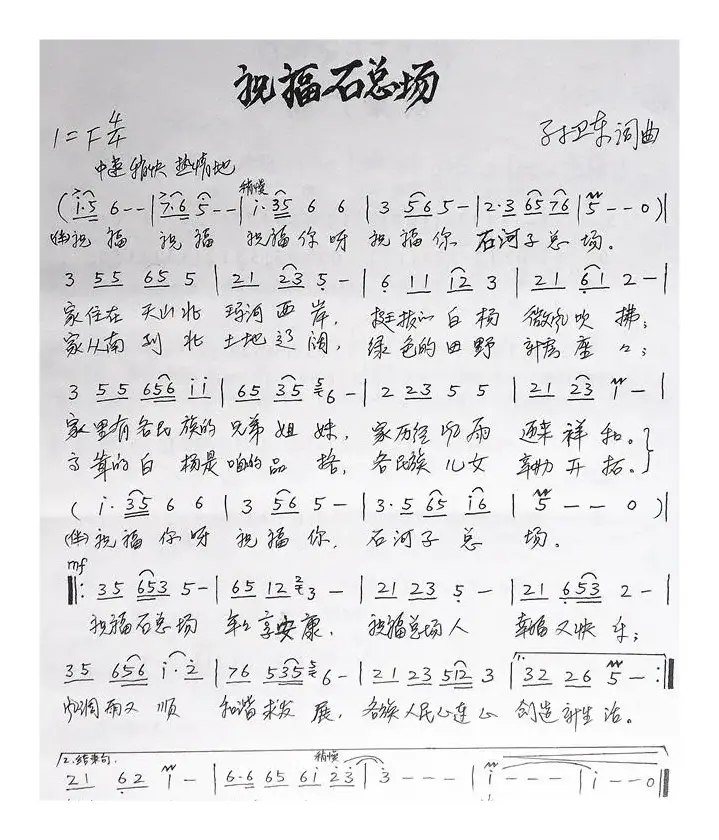 祝福石总场
1=F 4/4
孙卫东词曲
中速稍快 热情地
稍慢
(i·5 6 - - | 7·6 5 - - | i· 35 6 6 | 3 56 5 - | 2·3 65 76 | 5 - - 0 )|
(伴)祝福 祝福 祝福你呀 祝福你 石河子总场。
3 55 65 5 | 21 23 5 - | 6 11 12 3 | 21 61 2 - |
家住在天山北 玛河西岸, 挺拔的白杨 微风吹拂;
家从南到北 土地辽阔, 绿色的田野 新房座々;
3 55 656 ii | 65 35 6 - | 2 223 5 5 | 21 23 1 - |
家里有各民族的兄弟姐妹, 家历经风雨 迎来祥和。
高耸的白杨是咱的品格, 各民族儿女 奋力开拓。
( i· 35 6 6 | 3 56 5 - | 3·5 65 i6 | 5 - - 0 )|
(伴)祝福你呀 祝福你, 石河子总场。
mf
‖: 35 653 5 - | 65 12 3 - | 21 23 5 - | 21 653 2 - |
祝福石总场 年々享安康, 祝福总场人 幸福又快乐;
35 656 i·2 | 76 535 6 - | 21 23 512 3 | 1. 32 26 5 - :‖
风调雨又顺 和谐求发展, 各族人民心连心 创造新生活。
2.结束句. 稍慢
21 62 1 - | 6·6 65 6i 23 | 3 - - - | i - - - | i - - 0 ‖